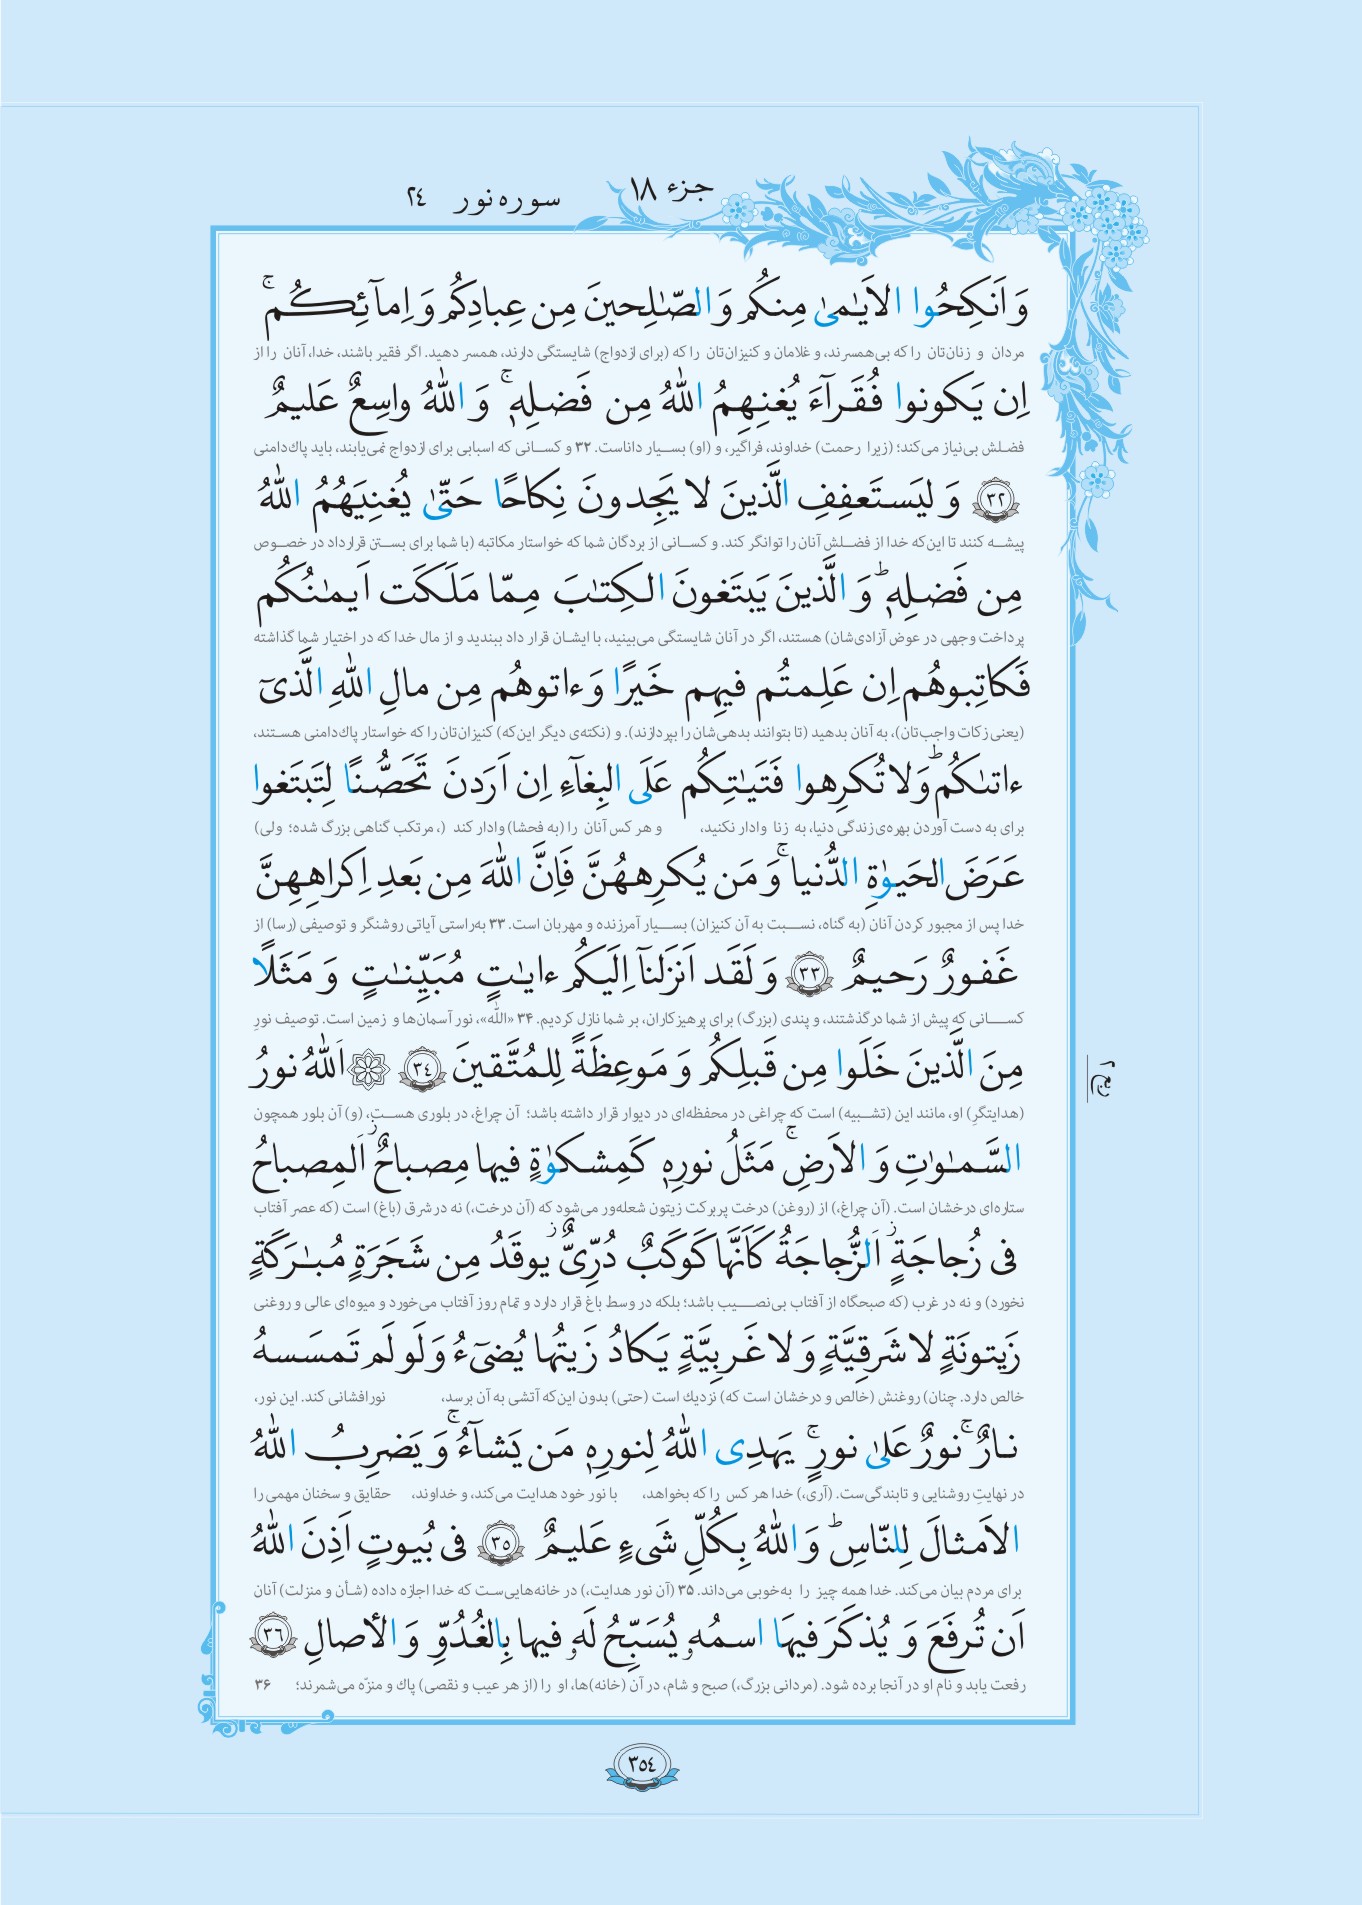 جزء ۱۸
سوره نور ۲٤
وَ اَنكِحُوا الاَیٰمیٰ مِنكُم وَ الصّٰلِحینَ مِن عِبادِكُم وَ اِمآئِكُم ۚ
مردان و زنان‌تان را که بی‌همسرند، و غلامان و کنیزان‌تان را که (برای ازدواج) شایستگی دارند، همسر دهید. اگر فقیر باشند، خدا، آنان را از
اِن یَكونوا فُقَرآءَ یُغنِهِمُ اللّٰهُ مِن فَضلِهٖ ۚ وَ اللّٰهُ واسِعٌ عَلیمٌ
فضلش بی‌نیاز می‌کند؛ (زیرا رحمت) خداوند، فراگیر، و (او) بسیار داناست. ۳۲ و کسانی که اسبابی برای ازدواج نمی‌یابند، باید پاك‌دامنی
﴿۳۲﴾ وَ لیَستَعفِفِ الَّذینَ لا یَجِدونَ نِكاحًا حَتّیٰ یُغنِیَهُمُ اللّٰهُ
پیشه کنند تا این‌که خدا از فضلش آنان را توانگر کند. و کسانی از بردگان شما که خواستار مکاتبه (با شما برای بستن قرارداد در خصوص
مِن فَضلِهٖ ؕ وَ الَّذینَ یَبتَغونَ الكِتٰبَ مِمّا مَلَكَت اَیمٰنُكُم
پرداخت وجهی در عوض آزادی‌شان) هستند، اگر در آنان شایستگی می‌بینید، با ایشان قرار داد ببندید و از مال خدا که در اختیار شما گذاشته
فَكاتِبوهُم اِن عَلِمتُم فیهِم خَیرًا وَ ءاتوهُم مِن مالِ اللّٰهِ الَّذیٓ
(یعنی زکات واجب‌تان)، به آنان بدهید (تا بتوانند بدهی‌شان را بپردازند). و (نکته‌ی دیگر این‌که) کنیزان‌تان را که خواستار پاك‌دامنی هستند،
ءاتىٰكُم ؕ وَ لا تُكرِهوا فَتَیٰتِكُم عَلَی البِغآءِ اِن اَرَدنَ تَحَصُّنًا لِتَبتَغوا
برای به دست آوردن بهره‌ی زندگی دنیا، به زنا وادار نکنید، و هر کس آنان را (به فحشا) وادار کند (، مرتکب گناهی بزرگ شده؛ ولی)
عَرَضَ الحَیوٰةِ الدُّنیا ۚ وَ مَن یُكرِههُنَّ فَاِنَّ اللّٰهَ مِن بَعدِ اِكراهِهِنَّ
خدا پس از مجبور کردن آنان (به گناه، نسبت به آن کنیزان) بسیار آمرزنده و مهربان است. ۳۳ به‌راستی آیاتی روشنگر و توصیفی (رسا) از
غَفورٌ رَحیمٌ ﴿۳۳﴾ وَ لَقَد اَنزَلنآ اِلَیكُم ءایٰتٍ مُبَیِّنٰتٍ وَ مَثَلًا
کسانی که پیش از شما درگذشتند، و پندی (بزرگ) برای پرهیزکاران، بر شما نازل کردیم. ۳۴ «اللّٰه»، نور آسمان‌ها و زمین است. توصیف نورِ
مِنَ الَّذینَ خَلَوا مِن قَبلِكُم وَ مَوعِظَةً لِلمُتَّقینَ ﴿۳٤﴾ ۞ اَللّٰهُ نورُ
(هدایتگرِ) او، مانند این (تشبیه) است که چراغی در محفظه‌ای در دیوار قرار داشته باشد؛ آن چراغ، در بلوری هست، (و) آن بلور همچون
السَّمٰوٰتِ وَ الاَرضِ ۚ مَثَلُ نورِهٖ كَمِشكوٰةٍ فیها مِصباحٌ ؗ اَلمِصباحُ
ستاره‌ای درخشان است. (آن چراغ،) از (روغن) درخت پربرکت زیتون شعله‌ور می‌شود که (آن درخت،) نه در شرق (باغ) است (که عصر آفتاب
فی زُجاجَةٍ ؗ اَلزُّجاجَةُ كَاَنَّها كَوكَبٌ دُرِّیٌّ ؗ یوقَدُ مِن شَجَرَةٍ مُبٰرَكَةٍ
نخورد) و نه در غرب (که صبحگاه از آفتاب بی‌نصیب باشد؛ بلکه در وسط باغ قرار دارد و تمام روز آفتاب می‌خورد و میوه‌ای عالی و روغنی
زَیتونَةٍ لا شَرقِیَّةٍ وَ لا غَربِیَّةٍ یَكادُ زَیتُها یُضیٓءُ وَ لَو لَم تَمسَسهُ
خالص دارد. چنان) روغنش (خالص و درخشان است که) نزدیك است (حتی) بدون این‌که آتشی به آن برسد، نورافشانی کند. این نور،
نارٌ ۚ نورٌ عَلیٰ نورٍ ۚ یَهدِی اللّٰهُ لِنورِهٖ مَن یَشآءُ ۚ وَ یَضرِبُ اللّٰهُ
در نهایتِ روشنایی و تابندگی‌ست. (آری،) خدا هر کس را که بخواهد، با نور خود هدایت می‌کند، و خداوند، حقایق و سخنان مهمی را
الاَمثالَ لِلنّاسِ ؕ وَ اللّٰهُ بِكُلِّ شَیءٍ عَلیمٌ ﴿۳۵﴾ فی بُیوتٍ اَذِنَ اللّٰهُ
برای مردم بیان می‌کند. خدا همه چیز را به‌خوبی می‌داند. ۳۵ (آن نور هدایت،) در خانه‌هایی‌ست که خدا اجازه داده (شأن و منزلت) آنان
اَن تُرفَعَ وَ یُذكَرَ فیهَا اسمُهٗ یُسَبِّحُ لَهٗ فیها بِالغُدُوِّ وَ الأصالِ ﴿۳٦﴾
رفعت یابد و نام او در آنجا برده شود. (مردانی بزرگ،) صبح و شام، در آن (خانه)ها، او را (از هر عیب و نقصی) پاك و منزّه می‌شمرند؛ ۳۶
ربع ۲
۳۵٤